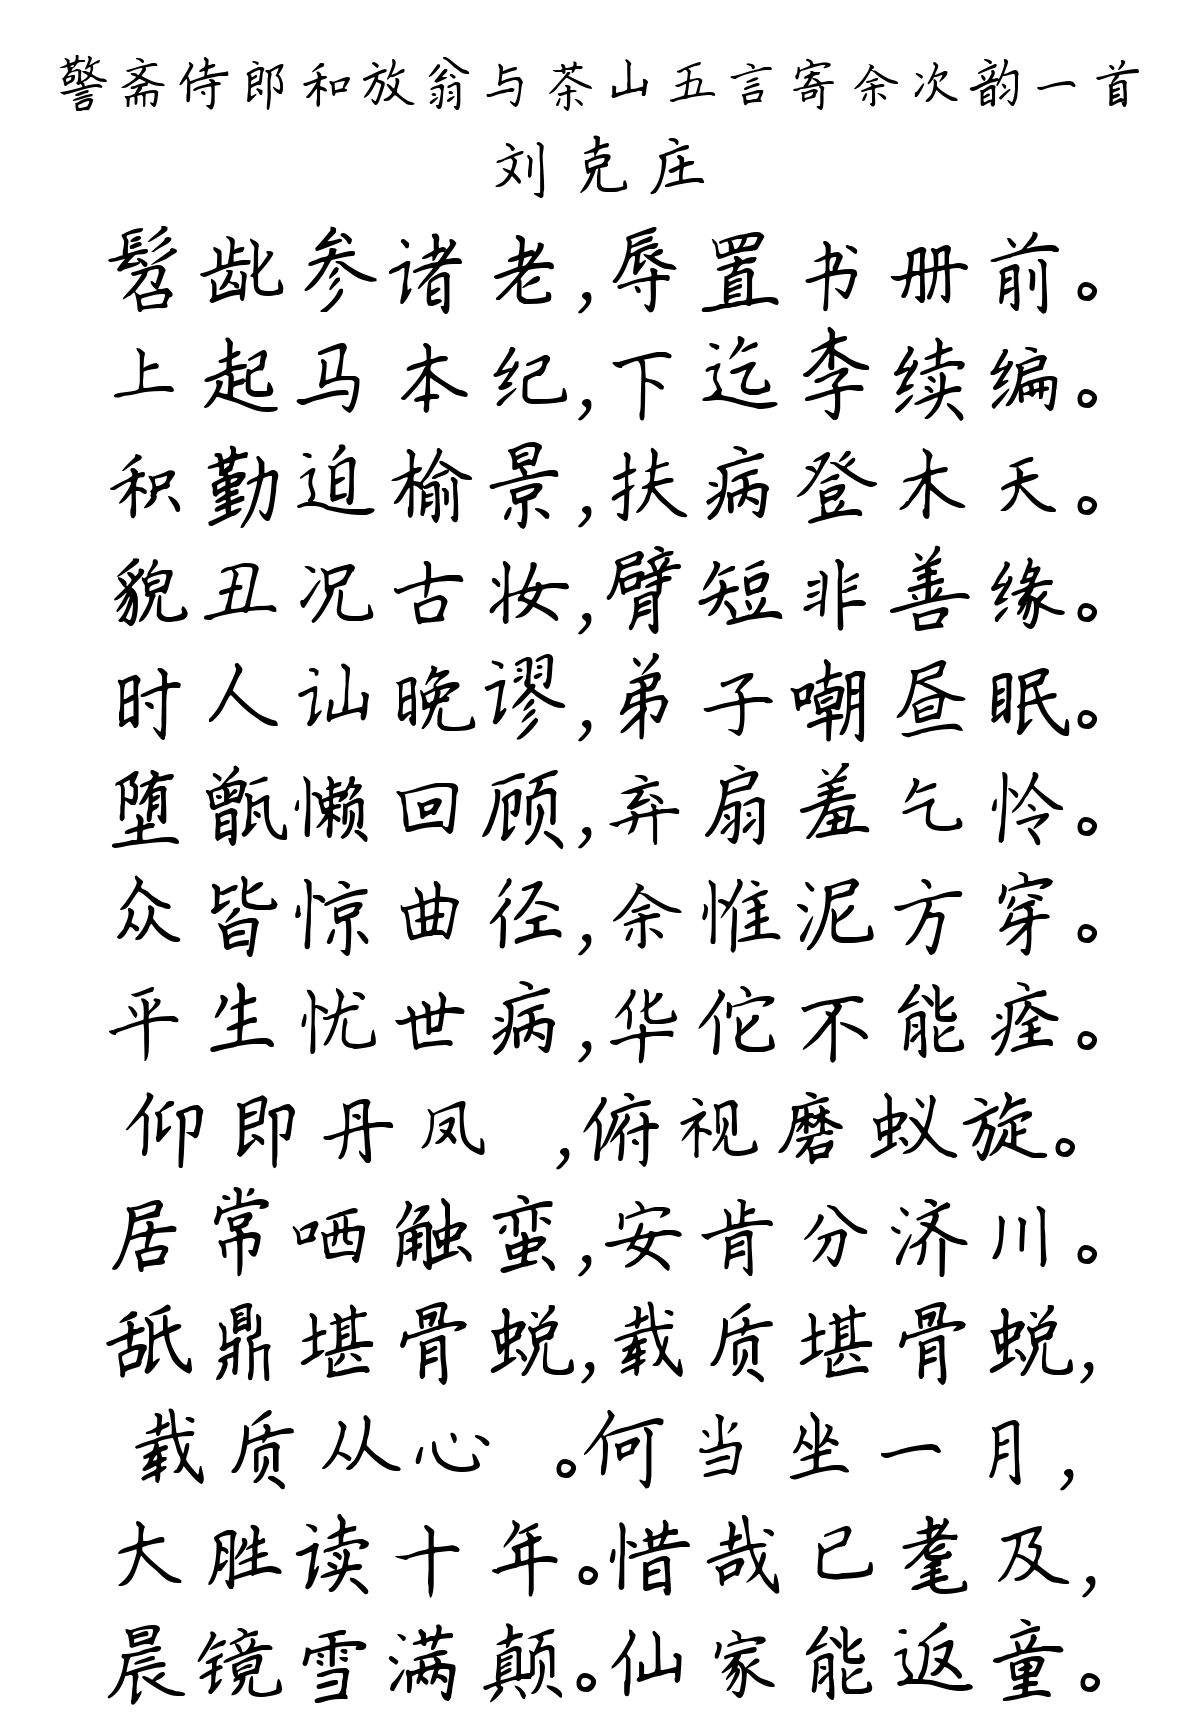 警斋侍郎和放翁与茶山五言寄余次韵一首
刘克庄
髫龀参诸老,辱置书册前。
上起马本纪,下迄李续编。
积勤迫榆景,扶病登木天。
貌丑况古妆,臂短非善缘。
时人讪晚谬,弟子嘲昼眠。
堕甑懒回顾,弃扇羞乞怜。
众皆惊曲径,余惟泥方穿。
平生忧世病,华佗不能痊。
仰即丹凤 ,俯视磨蚁旋。
居常哂触蛮,安肯分济川。
舐鼎堪骨蜕,载质堪骨蜕,
载质从心 。何当坐一月,
大胜读十年。惜哉已耄及,
晨镜雪满颠。仙家能返童。